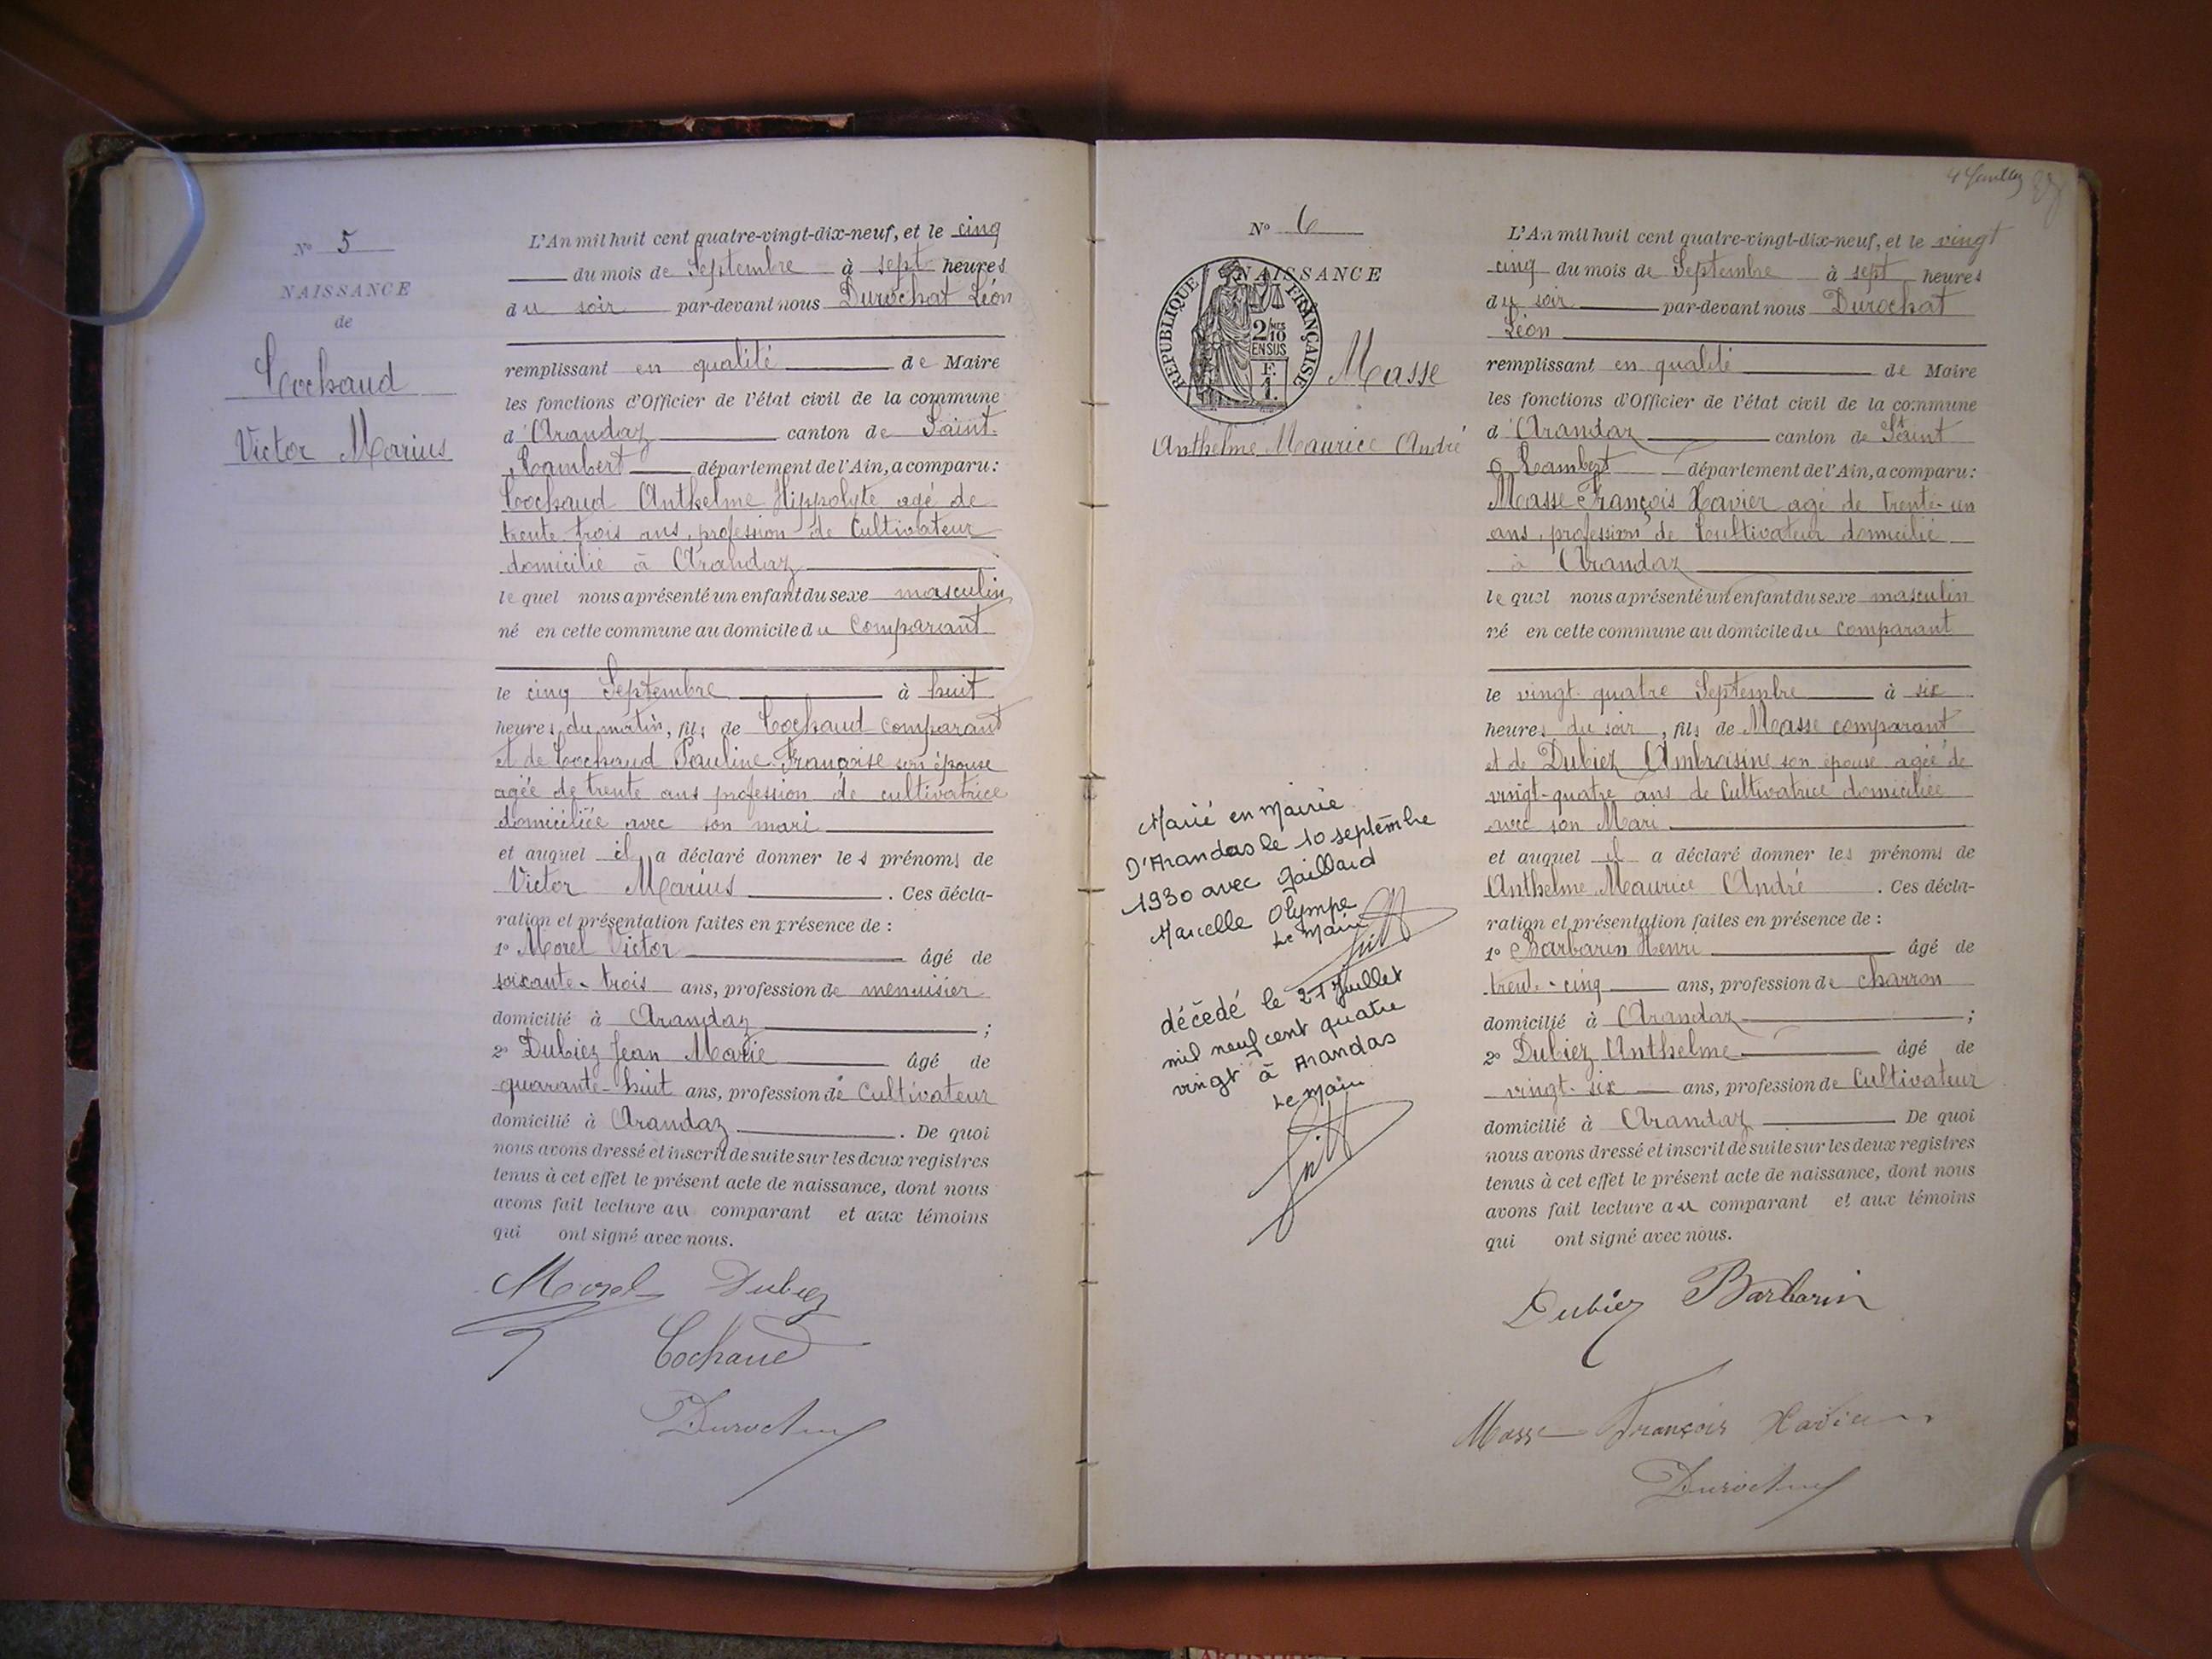 N° 5
NAISSANCE
de
Cochaud
Victor Marius
L'An mil huit cent quatre-vingt-dix-neuf, et le cinq
du mois de Septembre à sept heures
du soir par-devant nous Durochat Léon
remplissant en qualité de Maire
les fonctions d'Officier de l'état civil de la commune
d'Arandaz canton de Saint-
Rambert département de l'Ain, a comparu:
Cochaud Anthelme Hippolyte agé de
trente trois ans, profession de Cultivateur
domicilié à Arandaz
lequel nous a présenté un enfant du sexe masculin
né en cette commune au domicile du Comparant
le cinq Septembre à huit
heures du matin, fils de Cochaud comparant
et de Cochaud Pauline Françoise son épouse
agée de trente ans profession de cultivatrice
domiciliée avec son mari
et auquel il a déclaré donner les prénoms de
Victor Marius. Ces décla-
ration et présentation faites en présence de :
1° Morel Victor âgé de
soixante-trois ans, profession de menuisier
domicilié à Arandaz ;
2° Dubiez Jean Marie âgé de
quarante-huit ans, profession de Cultivateur
domicilié à Arandaz. De quoi
nous avons dressé et inscrit de suite sur les deux registres
tenus à cet effet le présent acte de naissance, dont nous
avons fait lecture au comparant et aux témoins
qui ont signé avec nous.
Morel Dubiez
Cochaud
Durochat
N° 6
NAISSANCE
REPUBLIQUE FRANÇAISE
2/10MES
EN SUS
F.
1.
Masse
Anthelme Maurice André
Marié en Mairie
D'Arandas le 10 septembre
1930 avec Gaillard
Marcelle Olympe
Le Maire
décédé le 21 Juillet
mil neuf cent quatre
vingt à Arandas
Le Maire
L'An mil huit cent quatre-vingt-dix-neuf, et le vingt
cinq du mois de Septembre à sept heures
du soir par-devant nous Durochat
Léon
remplissant en qualité de Maire
les fonctions d'Officier de l'état civil de la commune
d'Arandaz canton de Saint
Rambert département de l'Ain, a comparu:
Masse François Xavier agé de trente-un
ans, profession de Cultivateur domicilié
à Arandaz
lequel nous a présenté un enfant du sexe masculin
né en cette commune au domicile du comparant
le vingt-quatre Septembre à six
heures du soir, fils de Masse comparant
et de Dubiez Ambroisine son épouse agée de
vingt-quatre ans de Cultivatrice domiciliée
avec son Mari
et auquel il a déclaré donner les prénoms de
Anthelme Maurice André. Ces décla-
ration et présentation faites en présence de :
1° Barbarin Henri âgé de
trente-cinq ans, profession de charron
domicilié à Arandaz ;
2° Dubiez Anthelme âgé de
vingt-six ans, profession de Cultivateur
domicilié à Arandaz De quoi
nous avons dressé et inscrit de suite sur les deux registres
tenus à cet effet le présent acte de naissance, dont nous
avons fait lecture au comparant et aux témoins
qui ont signé avec nous.
Dubiez Barbarin
Masse François Xavier
Durochat